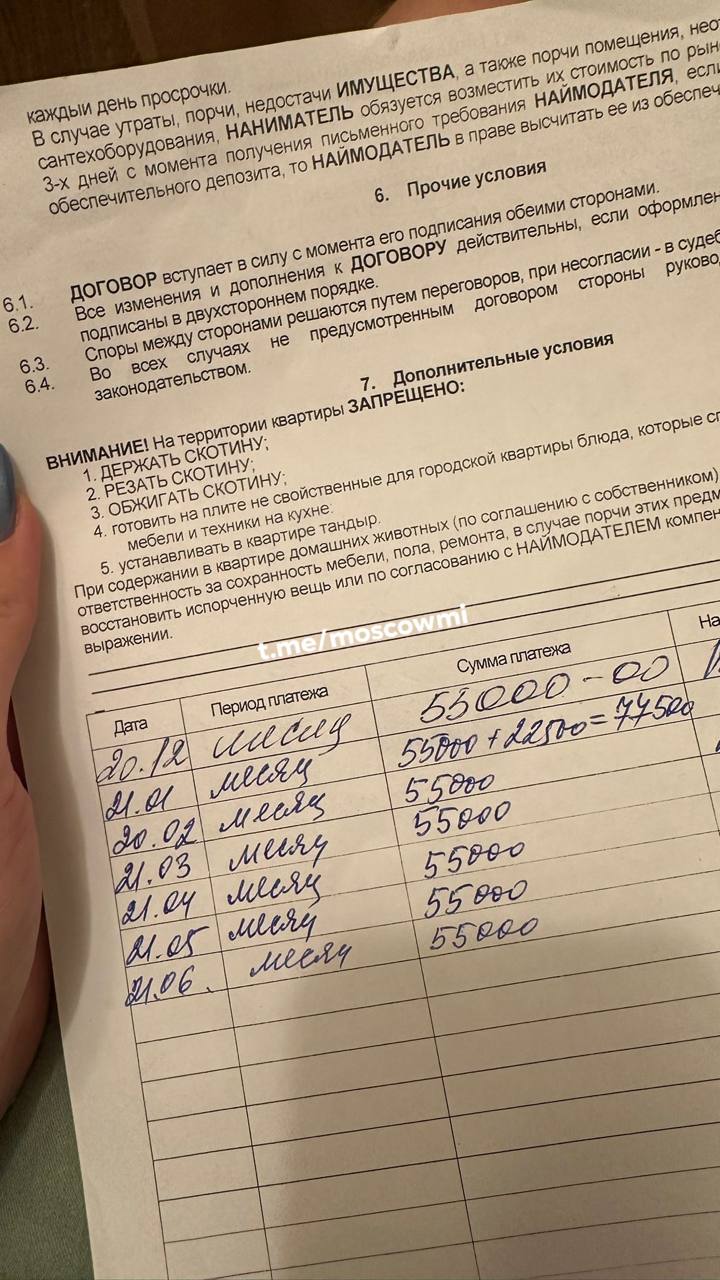 каждый день просрочки.
В случае утраты, порчи, недостачи ИМУЩЕСТВА, а также порчи помещения,
сантехоборудования, НАНИМАТЕЛЬ обязуется возместить их стоимость по
3-х дней с момента получения письменного требования НАЙМОДАТЕЛЯ, если
обеспечительного депозита, то НАЙМОДАТЕЛЬ в праве высчитать ее из
6. Прочие условия
6.1. ДОГОВОР вступает в силу с момента его подписания обеими сторонами.
6.2. Все изменения и дополнения к ДОГОВОРУ действительны, если
подписаны в двухстороннем порядке.
6.3. Споры между сторонами решаются путем переговоров, при несогласии - в
6.4. Во всех случаях не предусмотренным договором стороны
законодательством.
7. Дополнительные условия
ВНИМАНИЕ! На территории квартиры ЗАПРЕЩЕНО:
1. ДЕРЖАТЬ СКОТИНУ;
2. РЕЗАТЬ СКОТИНУ;
3. ОБЖИГАТЬ СКОТИНУ;
4. готовить на плите не свойственные для городской квартиры блюда, которые
мебели и техники на кухне:
5. устанавливать в квартире тандыр.
При содержании в квартире домашних животных (по соглашению с собственником)
ответственность за сохранность мебели, пола, ремонта, в случае порчи этих
восстановить испорченную вещь или по согласованию с НАЙМОДАТЕЛЕМ
выражении.
t.me/moscowmi
Дата Период платежа Сумма платежа
20.12 месяц 55000-00
21.01 месяц 55000+22500=77500
20.02 месяц 55000
21.03 месяц 55000
21.04 месяц 55000
21.05 месяц 55000
21.06. месяц 55000